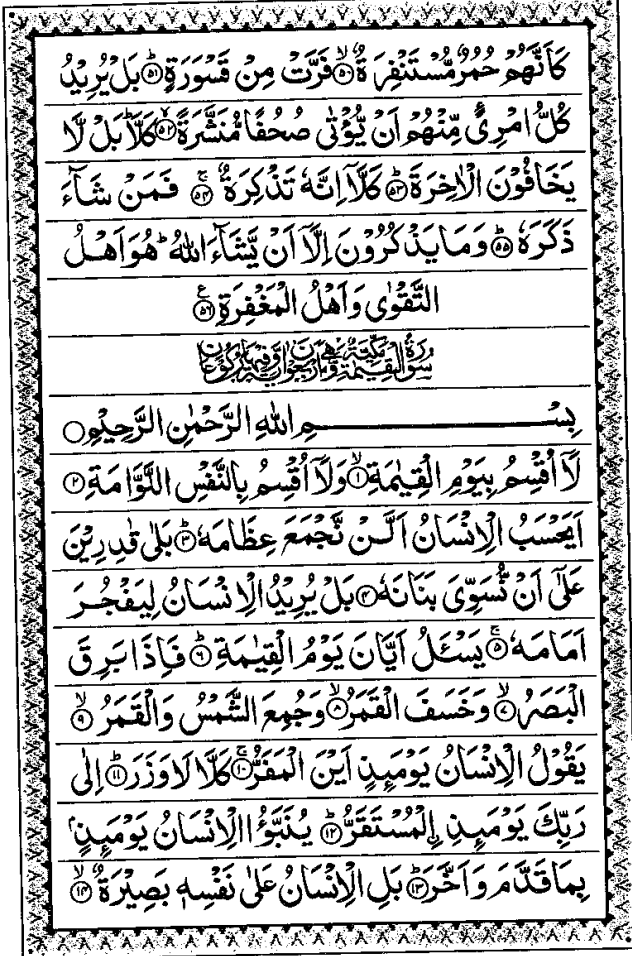 كَاَنَّهُمْ حُمُرٌ مُّسْتَنْفِرَةٌ ۙ﴿۵۰﴾ فَرَّتْ مِنْ قَسْوَرَةٍ ؕ﴿۵۱﴾ بَلْ يُرِيْدُ
كُلُّ امْرِئٍ مِّنْهُمْ اَنْ يُّؤْتٰى صُحُفًا مُّنَشَّرَةً ۙ﴿۵۲﴾ كَلَّا ؕ بَلْ لَّا
يَخَافُوْنَ الْاٰخِرَةَ ؕ﴿۵۳﴾ كَلَّاۤ اِنَّهٗ تَذْكِرَةٌ ۚ﴿۵۴﴾ فَمَنْ شَآءَ
ذَكَرَهٗ ؕ﴿۵۵﴾ وَمَا يَذْكُرُوْنَ اِلَّاۤ اَنْ يَّشَآءَ اللّٰهُ ؕ هُوَ اَهْلُ
التَّقْوٰى وَاَهْلُ الْمَغْفِرَةِ ﴿۵۶﴾ ع
سُوْرَةُ الْقِيٰمَةِ مَكِّيَّةٌ وَّهِيَ اَرْبَعُوْنَ اٰيَةً وَّفِيْهَا رُكُوْعَانِ
بِسْمِ اللّٰهِ الرَّحْمٰنِ الرَّحِيْمِ
لَاۤ اُقْسِمُ بِيَوْمِ الْقِيٰمَةِ ۙ﴿۱﴾ وَلَاۤ اُقْسِمُ بِالنَّفْسِ اللَّوَّامَةِ ﴿۲﴾
اَيَحْسَبُ الْاِنْسَانُ اَلَّنْ نَّجْمَعَ عِظَامَهٗ ؕ﴿۳﴾ بَلٰى قٰدِرِيْنَ
عَلٰۤى اَنْ نُّسَوِّيَ بَنَانَهٗ ﴿۴﴾ بَلْ يُرِيْدُ الْاِنْسَانُ لِيَفْجُرَ
اَمَامَهٗ ۚ﴿۵﴾ يَسْـَٔلُ اَيَّانَ يَوْمُ الْقِيٰمَةِ ؕ﴿۶﴾ فَاِذَا بَرِقَ
الْبَصَرُ ۙ﴿۷﴾ وَخَسَفَ الْقَمَرُ ۙ﴿۸﴾ وَجُمِعَ الشَّمْسُ وَالْقَمَرُ ۙ﴿۹﴾
يَقُوْلُ الْاِنْسَانُ يَوْمَىِٕذٍ اَيْنَ الْمَفَرُّ ۚ﴿۱۰﴾ كَلَّا لَا وَزَرَ ؕ﴿۱۱﴾ اِلٰى
رَبِّكَ يَوْمَىِٕذِ ِۨالْمُسْتَقَرُّ ؕ﴿۱۲﴾ يُنَبَّؤُا الْاِنْسَانُ يَوْمَىِٕذٍۭ
بِمَا قَدَّمَ وَاَخَّرَ ؕ﴿۱۳﴾ بَلِ الْاِنْسَانُ عَلٰى نَفْسِهٖ بَصِيْرَةٌ ۙ﴿۱۴﴾